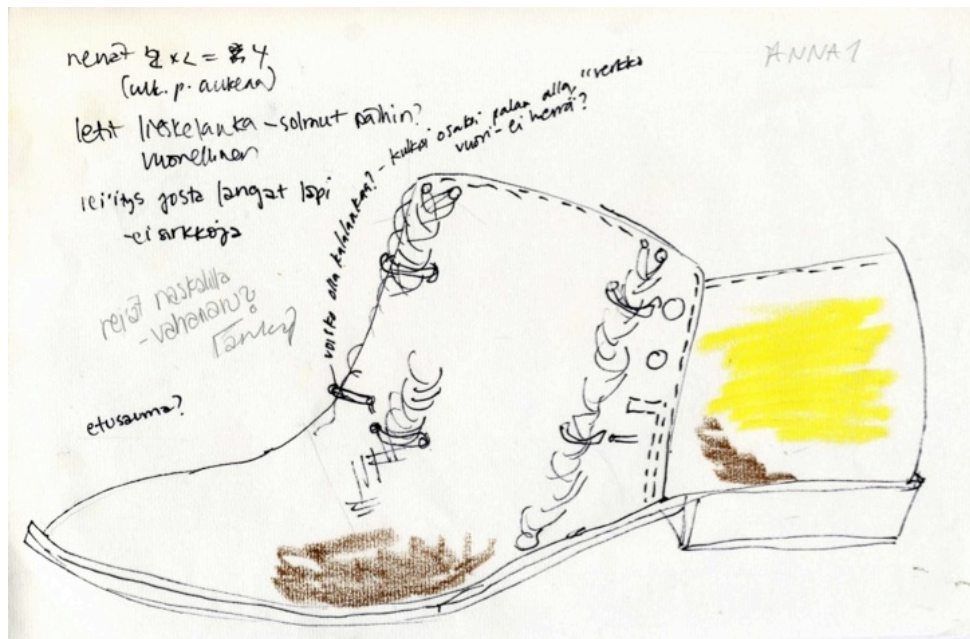 reiät 2 x 2 = 4
(ulk. p. aukeaa)
letit lieskelanka - solmut päihin?
vuorellinen
rei'itys josta langat läpi
- ei sirkkoja
reiät naskalilla
- vahanaru?
etusauma?
voisko olla kalalankaa? - kulkisi osaksi palan alla
vuori - ei hierrä?
ANNA 1